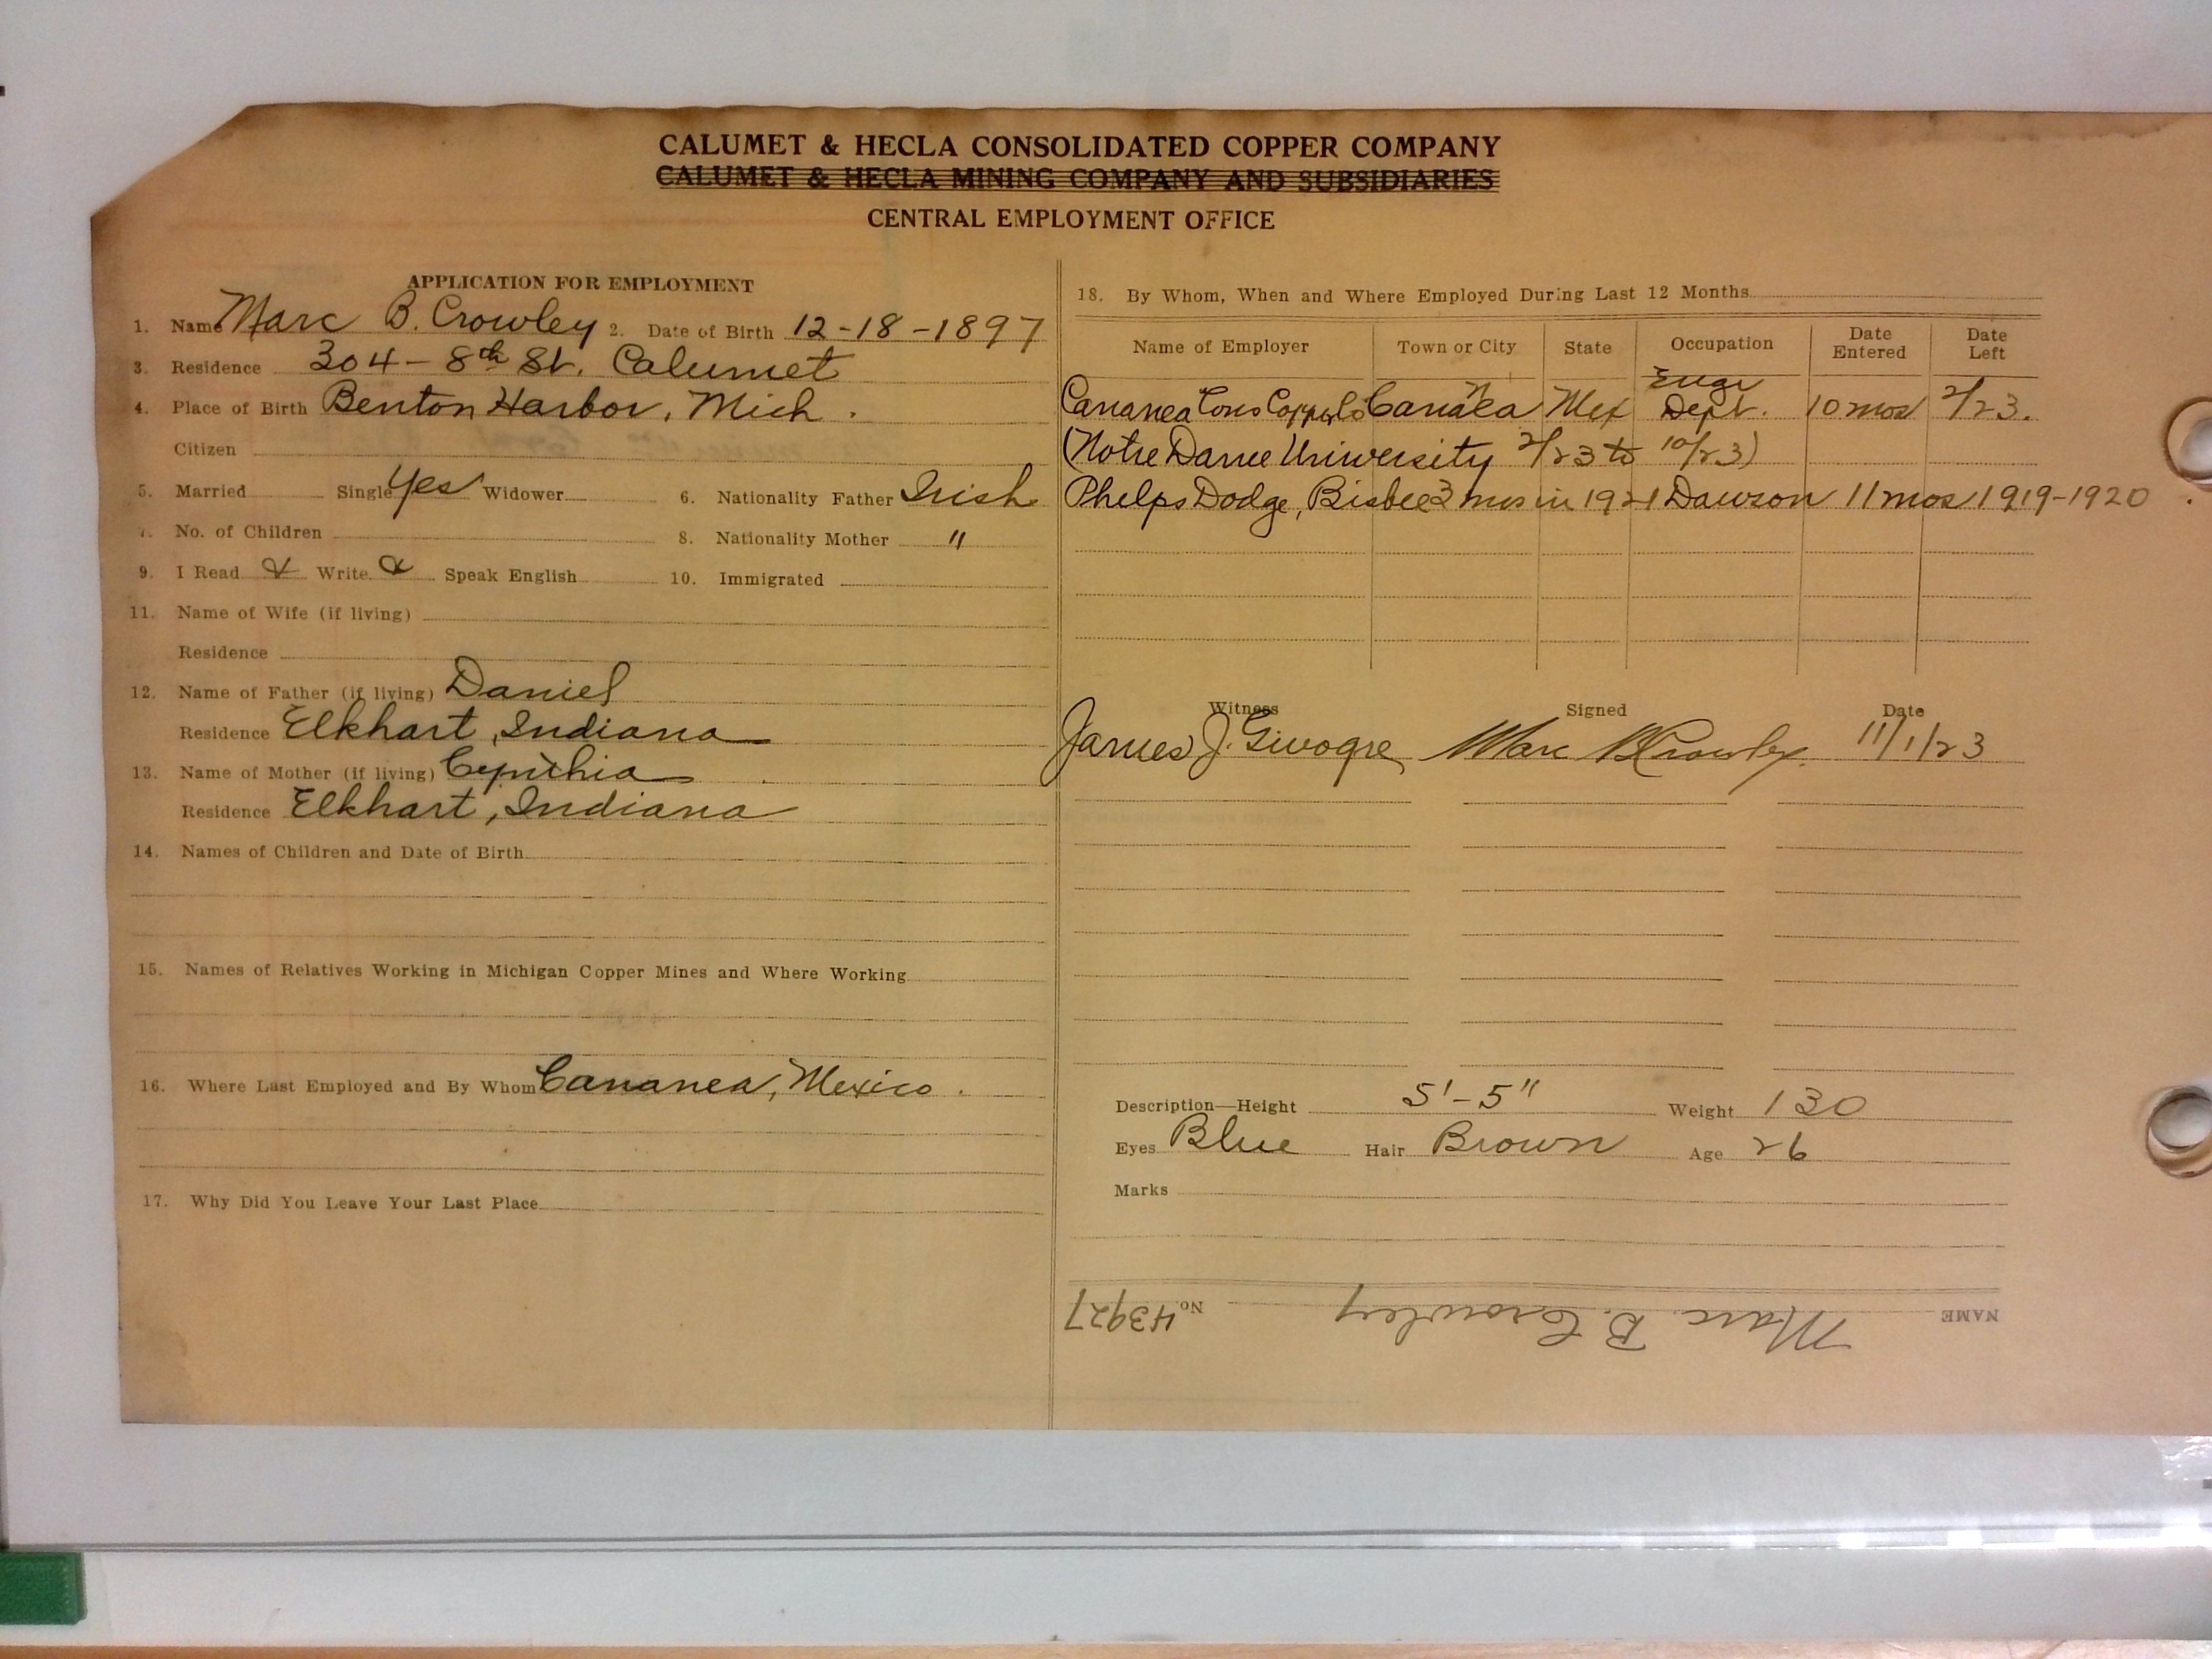 CALUMET & HECLA CONSOLIDATED COPPER COMPANY
CALUMET & HECLA MINING COMPANY AND SUBSIDIARIES
CENTRAL EMPLOYMENT OFFICE
APPLICATION FOR EMPLOYMENT
1. Name Marc B. Crowley 2. Date of Birth 12-18-1897
3. Residence 304 - 8th St. Calumet
4. Place of Birth Benton Harbor, Mich.
Citizen
5. Married Single Yes Widower 6. Nationality Father Irish
7. No. of Children 8. Nationality Mother "
9. I Read & Write & Speak English 10. Immigrated
11. Name of Wife (if living)
Residence
12. Name of Father (if living) Daniel
Residence Elkhart, Indiana
13. Name of Mother (if living) Cynthia
Residence Elkhart, Indiana
14. Names of Children and Date of Birth
15. Names of Relatives Working in Michigan Copper Mines and Where Working
16. Where Last Employed and By Whom Cananea, Mexico.
17. Why Did You Leave Your Last Place
18. By Whom, When and Where Employed During Last 12 Months
Name of Employer Town or City State Occupation Date Entered Date Left
Cananea Cons Copper Co Cananea Mex Engr Dept. 10 mos 2/23.
(Notre Dame University 2/23 to 10/23)
Phelps Dodge, Bisbee 3 mos in 1921 Dawson 11 mos 1919-1920
Witness Signed Date
James J. Marc B Crowley 11/1/23
Description—Height 5'-5" Weight 130
Eyes Blue Hair Brown Age 26
Marks
NAME Marc B. Crowley No. 43927